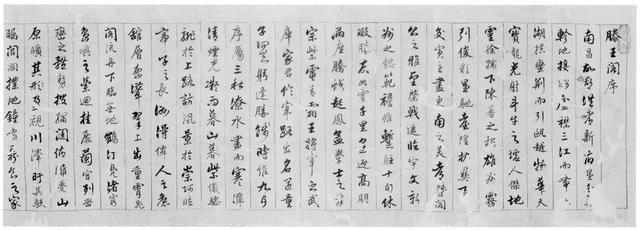 滕王閣序
南昌故郡洪都新府星分翼
軫地接衡廬襟三江而帶五
湖控蠻荊而引甌越物華天
寶龍光射斗牛之墟人傑地
靈徐孺下陳蕃之榻雄州霧
列俊彩星馳臺隍枕夷夏之
交賓主盡東南之美都督閻
公之雅望棨戟遙臨宇文新
州之懿範襜帷暫駐十旬休
暇勝友如雲千里逢迎高朋
滿座騰蛟起鳳孟學士之詞
宗紫電青霜王將軍之武
庫家君作宰路出名區童
子何知躬逢勝餞時維九月
序屬三秋潦水盡而寒潭
清煙光凝而暮山紫儼驂
騑於上路訪風景於崇阿臨
帝子之長洲得仙人之舊
館層巒聳翠上出重霄飛
閣流丹下臨無地鶴汀鳧渚窮
島嶼之縈迴桂殿蘭宮列岡
巒之體勢披繡闥俯雕甍山
原曠其盈視川澤盱其駭
矚閭閻撲地鐘鳴鼎食之家